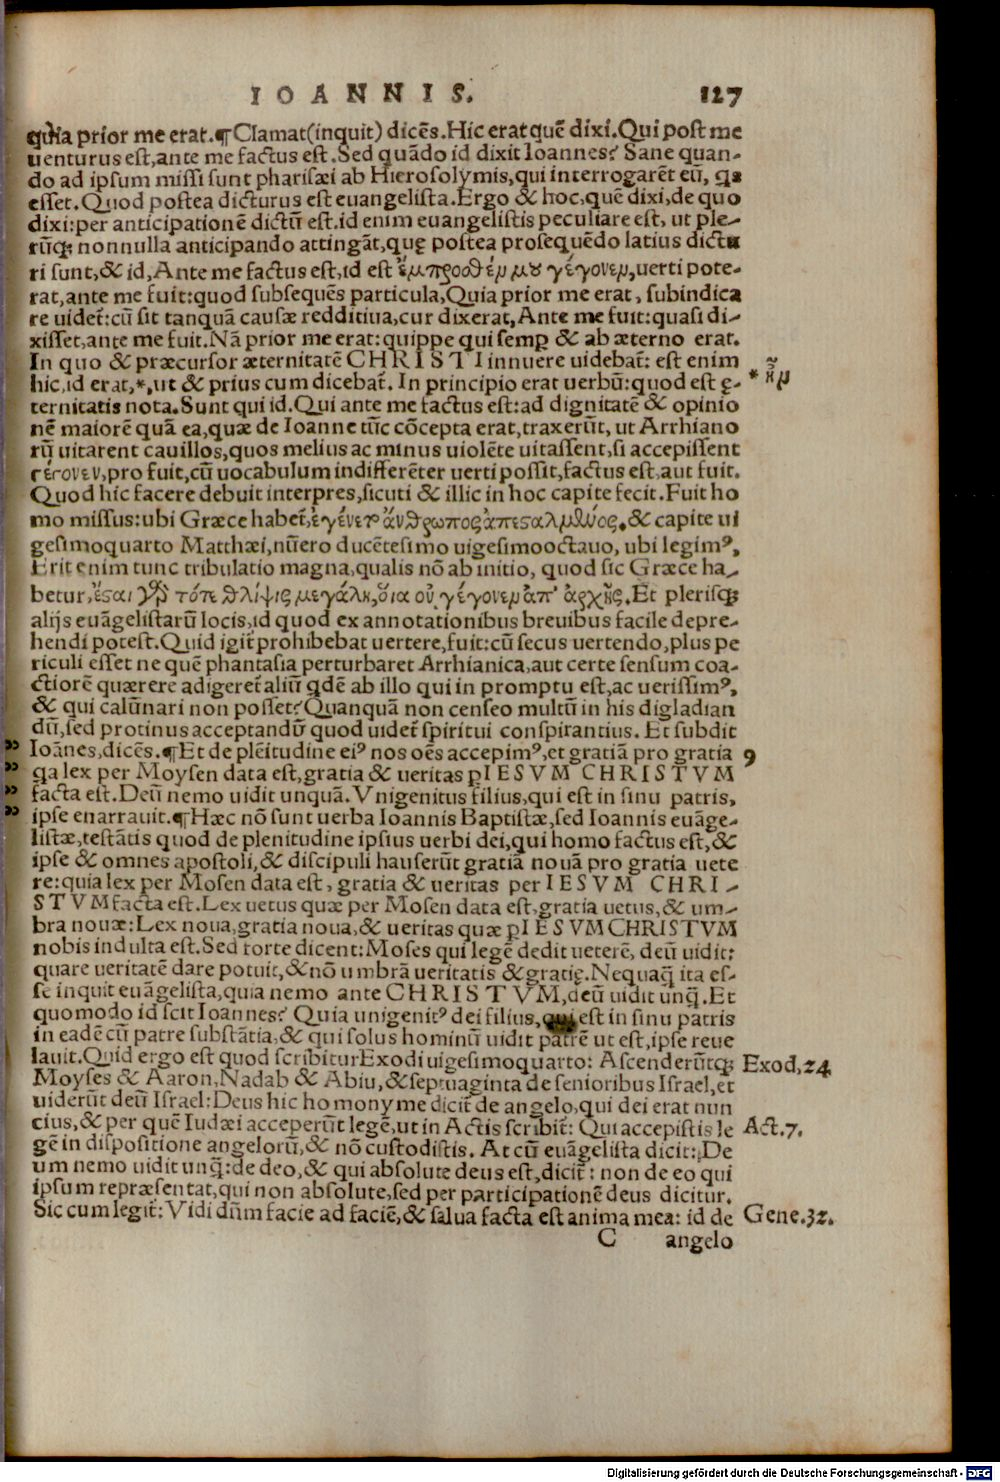 IOANNIS. 127
quia prior me erat.¶Clamat(inquit) dicēs.Hic erat quē dixi.Qui post me
uenturus est,ante me factus est.Sed quādo id dixit Ioannes? Sane quan-
do ad ipsum missi sunt pharisæi ab Hierosolymis,qui interrogarēt eū, qs
esset.Quod postea dicturus est euangelista.Ergo & hoc,quē dixi,de quo
dixi:per anticipationē dictū est.id enim euangelistis peculiare est, ut ple-
rūq; nonnulla anticipando attingāt,quę postea prosequēdo latius dictu
ri sunt,& id,Ante me factus est,id est ἔμπροσθέν μου γέγονεν,uerti pote-
rat,ante me fuit:quod subsequēs particula,Quia prior me erat, subindica
re uidet̄:cū sit tanquā causæ redditiua,cur dixerat,Ante me fuit:quasi di-
xisset,ante me fuit.Nā prior me erat:quippe qui semp & ab æterno erat.
In quo & præcursor æternitatē CHRISTI innuere uidebat̄: est enim
hic,id erat,*,ut & prius cum dicebat̄. In principio erat uerbū:quod est ę- * ἦν
ternitatis nota.Sunt qui id.Qui ante me factus est:ad dignitatē & opinio
nē maiorē quā ea,quæ de Ioanne tūc cōcepta erat,traxerūt, ut Arrhiano
rū uitarent cauillos,quos melius ac minus uiolēte uitassent,si accepissent
γέγονεν,pro fuit,cū uocabulum indifferēter uerti possit,factus est,aut fuit.
Quod hic facere debuit interpres,sicuti & illic in hoc capite fecit.Fuit ho
mo missus:ubi Græce habet̄,ἐγένετο ἄνθρωπος ἀπεσαλμένος,& capite ui
gesimoquarto Matthæi,nūero ducētesimo uigesimooctauo, ubi legimꝰ,
Erit enim tunc tribulatio magna,qualis nō ab initio, quod sic Græce ha-
betur,ἔσαι γὰρ τότε θλίψις μεγάλη,ὅια οὐ γέγονεν ἀπ' ἀρχῆς.Et plerisq;
alijs euāgelistarū locis,id quod ex annotationibus breuibus facile depre-
hendi potest.Quid igit̄ prohibebat uertere,fuit:cū secus uertendo,plus pe
riculi esset ne quē phantasia perturbaret Arrhianica,aut certe sensum coa-
ctiorē quærere adigeret̄ aliū qdē ab illo qui in promptu est,ac uerissimꝰ,
& qui calūnari non posset?Quanquā non censeo multū in his digladian
dū,sed protinus acceptandū quod uidet̄ spiritui conspirantius. Et subdit
Ioānes,dicēs.¶Et de plēitudine eiꝰ nos oēs accepimꝰ,et gratiā pro gratia 9
qa lex per Moysen data est,gratia & ueritas p IESVM CHRISTVM
facta est.Deū nemo uidit unquā.Vnigenitus filius,qui est in sinu patris,
ipse enarrauit.¶Hæc nō sunt uerba Ioannis Baptistæ,sed Ioannis euāge-
listæ,testātis quod de plenitudine ipsius uerbi dei,qui homo factus est,&
ipse & omnes apostoli,& discipuli hauserūt gratiā nouā pro gratia uete
re:quia lex per Mosen data est, gratia & ueritas per IESVM CHRI-
STVM facta est.Lex uetus quæ per Mosen data est,gratia uetus,& um-
bra nouæ:Lex noua,gratia noua,& ueritas quæ p IESVM CHRISTVM
nobis indulta est.Sed forte dicent:Moses qui legē dedit ueterē, deū uidit:
quare ueritatē dare potuit,& nō umbrā ueritatis & gratię.Nequaq̄ ita es-
se inquit euāgelista,quia nemo ante CHRISTVM,deū uidit unq̄.Et
quomodo id scit Ioannes? Quia unigenitꝰ dei filius,qui est in sinu patris
in eadē cū patre substātia,& qui solus hominū uidit patrē ut est,ipse reue
lauit.Quid ergo est quod scribitur Exodi uigesimoquarto: Ascenderūtq; Exod,24
Moyses & Aaron,Nadab & Abiu,& septuaginta de senioribus Israel,et
uiderūt deū Israel:Deus hic homonyme dicit̄ de angelo,qui dei erat nun
cius,& per quē Iudæi acceperūt legē,ut in Actis scribit̄: Qui accepistis le Act.7.
gē in dispositione angelorū,& nō custodistis. At cū euāgelista dicit:De
um nemo uidit unq̄:de deo,& qui absolute deus est,dicit̄: non de eo qui
ipsum repræsentat,qui non absolute,sed per participationē deus dicitur.
Sic cum legit̄: Vidi dūm facie ad faciē,& salua facta est anima mea: id de Gene.32.
C angelo
Digitalisierung gefördert durch die Deutsche Forschungsgemeinschaft - DFG